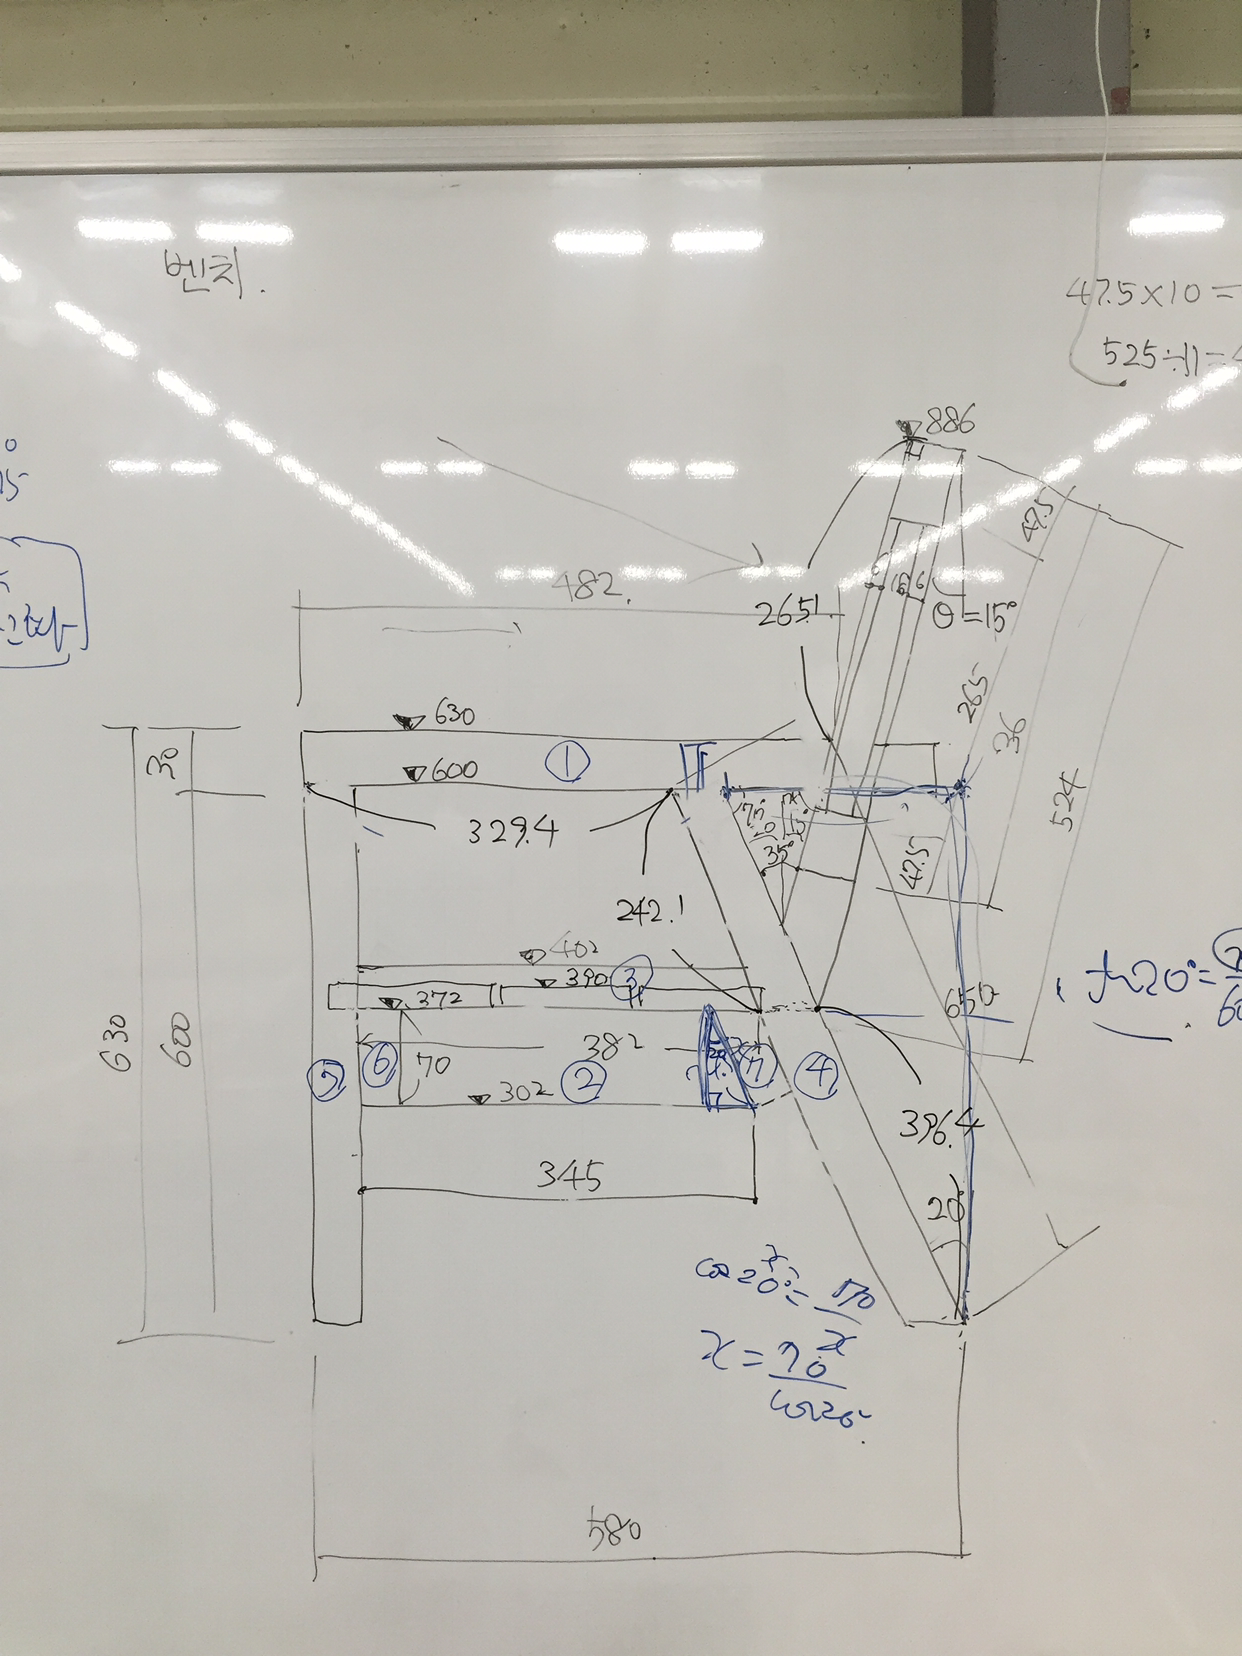 벤치.
47.5×10=
525÷11=4
15
886
47.5
482.
265.1
θ=15°
265
36
630
30
600
①
524
329.4
70°
20
15°
35°
47.5
242.1
402
390 ③
372
650
tan20°=
630
600
382
⑤
⑥
70
②
④
302
396.4
345
20°
cos20°= 70/x
x= 70/cos20°
580